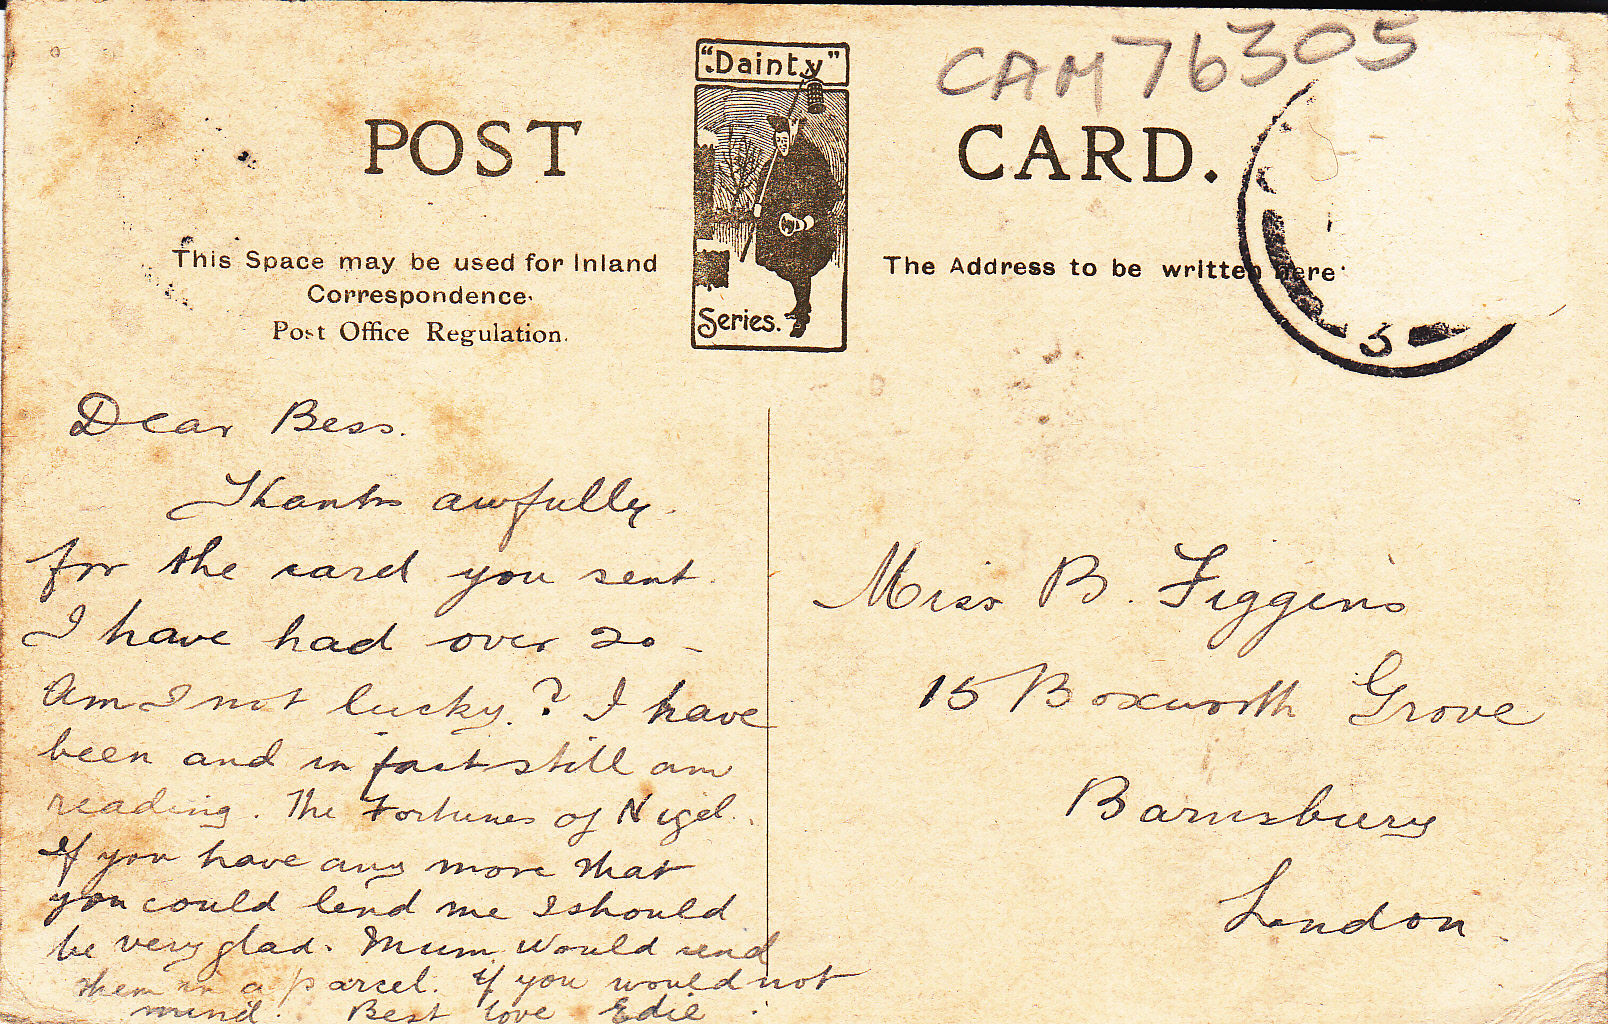 CAM 76305
"Dainty"
Series.
POST CARD.
This Space may be used for Inland
Correspondence.
Post Office Regulation.
The Address to be written here.
3
Dear Bess.
Thanks awfully.
for the card you sent.
I have had over 20 -
Am I not lucky.? I have
been and in fact still am
reading. The Fortunes of Nigel.
If you have any more that
you could lend me I should
be very glad. Mum would send
them in a parcel. If you would not
mind. Best love Edie
Miss B. Figgins
15 Boxworth Grove
Barnsbury
London.